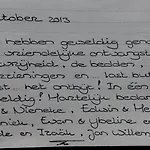 ctober 2013
hebben geweldig geno
vriendelijke ontvangst
wrijheid, de bedden,
rzieningen en ... last but
st ... het ontbijt! In één
eldig! Hartelijke bedan
& Nienke, Edwin & He
niek, Ewan & Ybeline en
le en Izaäk, Jan Willem